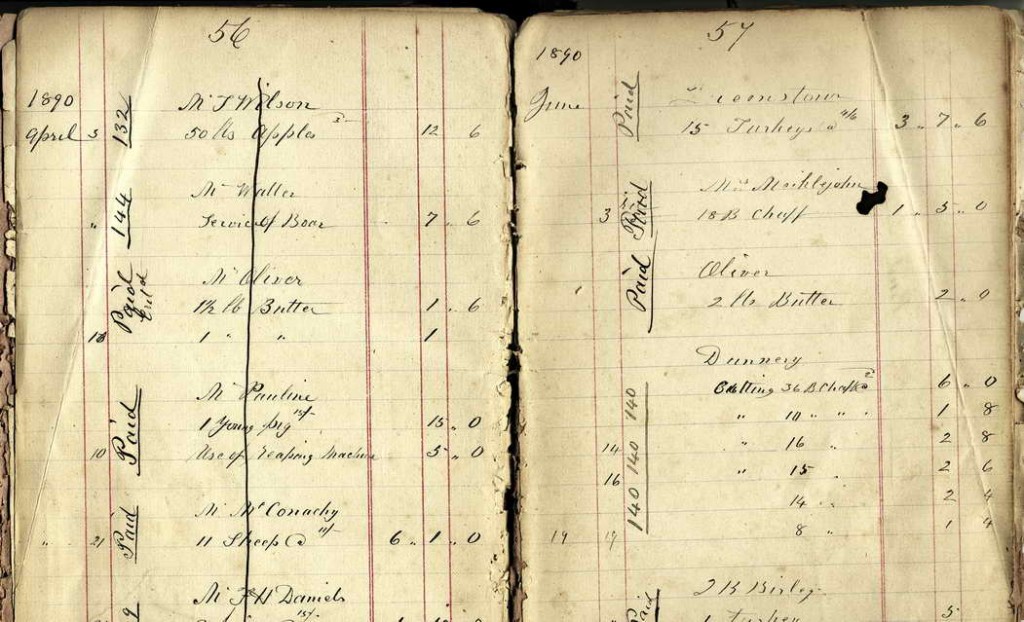 56
1890
April 5 132 Mr J Wilson
50 lbs Apples 3 12 " 6
144 Mr Waller
" Service of Boar 7 " 6
Paid Mr Oliver
1½ lb Butter 1 " 6
1 " " 1
Paid Mr Pauline
1 Young pig 15/- 15 " 0
10 Use of Reaping Machine 5 " 0
Paid Mr McConachy
" 21 11 Sheep @ 11/- 6 " 1 " 0
Mr F H Daniels
15/-
57
1890
June Paid
15 Turkeys @ 4/6 3 " 7 " 6
Paid Mrs Meiklejohn
3 18 B Chaff 1 " 5 " 0
Paid Oliver
2 lbs Butter 2 " 0
Dunnery
140 Cutting 36 B Chaff @ 2 6 " 0
" 10 " " " 1 8
14 140 " 16 " 2 8
16 " 15 " 2 6
140 14 " " 2 4
19 19 8 " 1 4
Paid J B Birley
1 Turkey 5